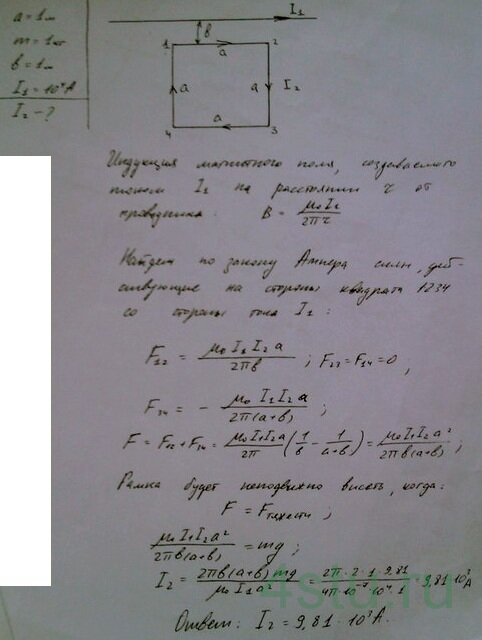 a = 1м
m = 1кг
в = 1м
I₁ = 10⁴ А
I₂ - ?
I₁
в
1
2
a
a
a
I₂
a
4
3
Индукция магнитного поля, создаваемого
током I₁ на расстоянии r от
проводника: B = μ₀I₁/2πr
Найдем по закону Ампера силы, дей-
ствующие на стороны квадрата 1234
со стороны тока I₁:
F₁₂ = μ₀ I₁ I₂ a/2πв ; F₂₃ = F₁₄ = 0 ;
F₃₄ = - μ₀ I₁ I₂ a/2π(a+в) ;
F = F₁₂ + F₃₄ = μ₀I₁I₂a/2π (1/в - 1/(a+в)) = μ₀I₁I₂a²/2πв(a+в) ;
Рамка будет неподвижно висеть, когда:
F = Fтяжести ;
μ₀I₁I₂a²/2πв(a+в) = mg ;
I₂ = 2πв(a+в)mg/μ₀I₁a² = 2π·2·1·9,81/4π·10⁻⁷·10⁴·1 = 9,81·10³ А
Ответ: I₂ = 9,81·10³ А.
4stu.ru